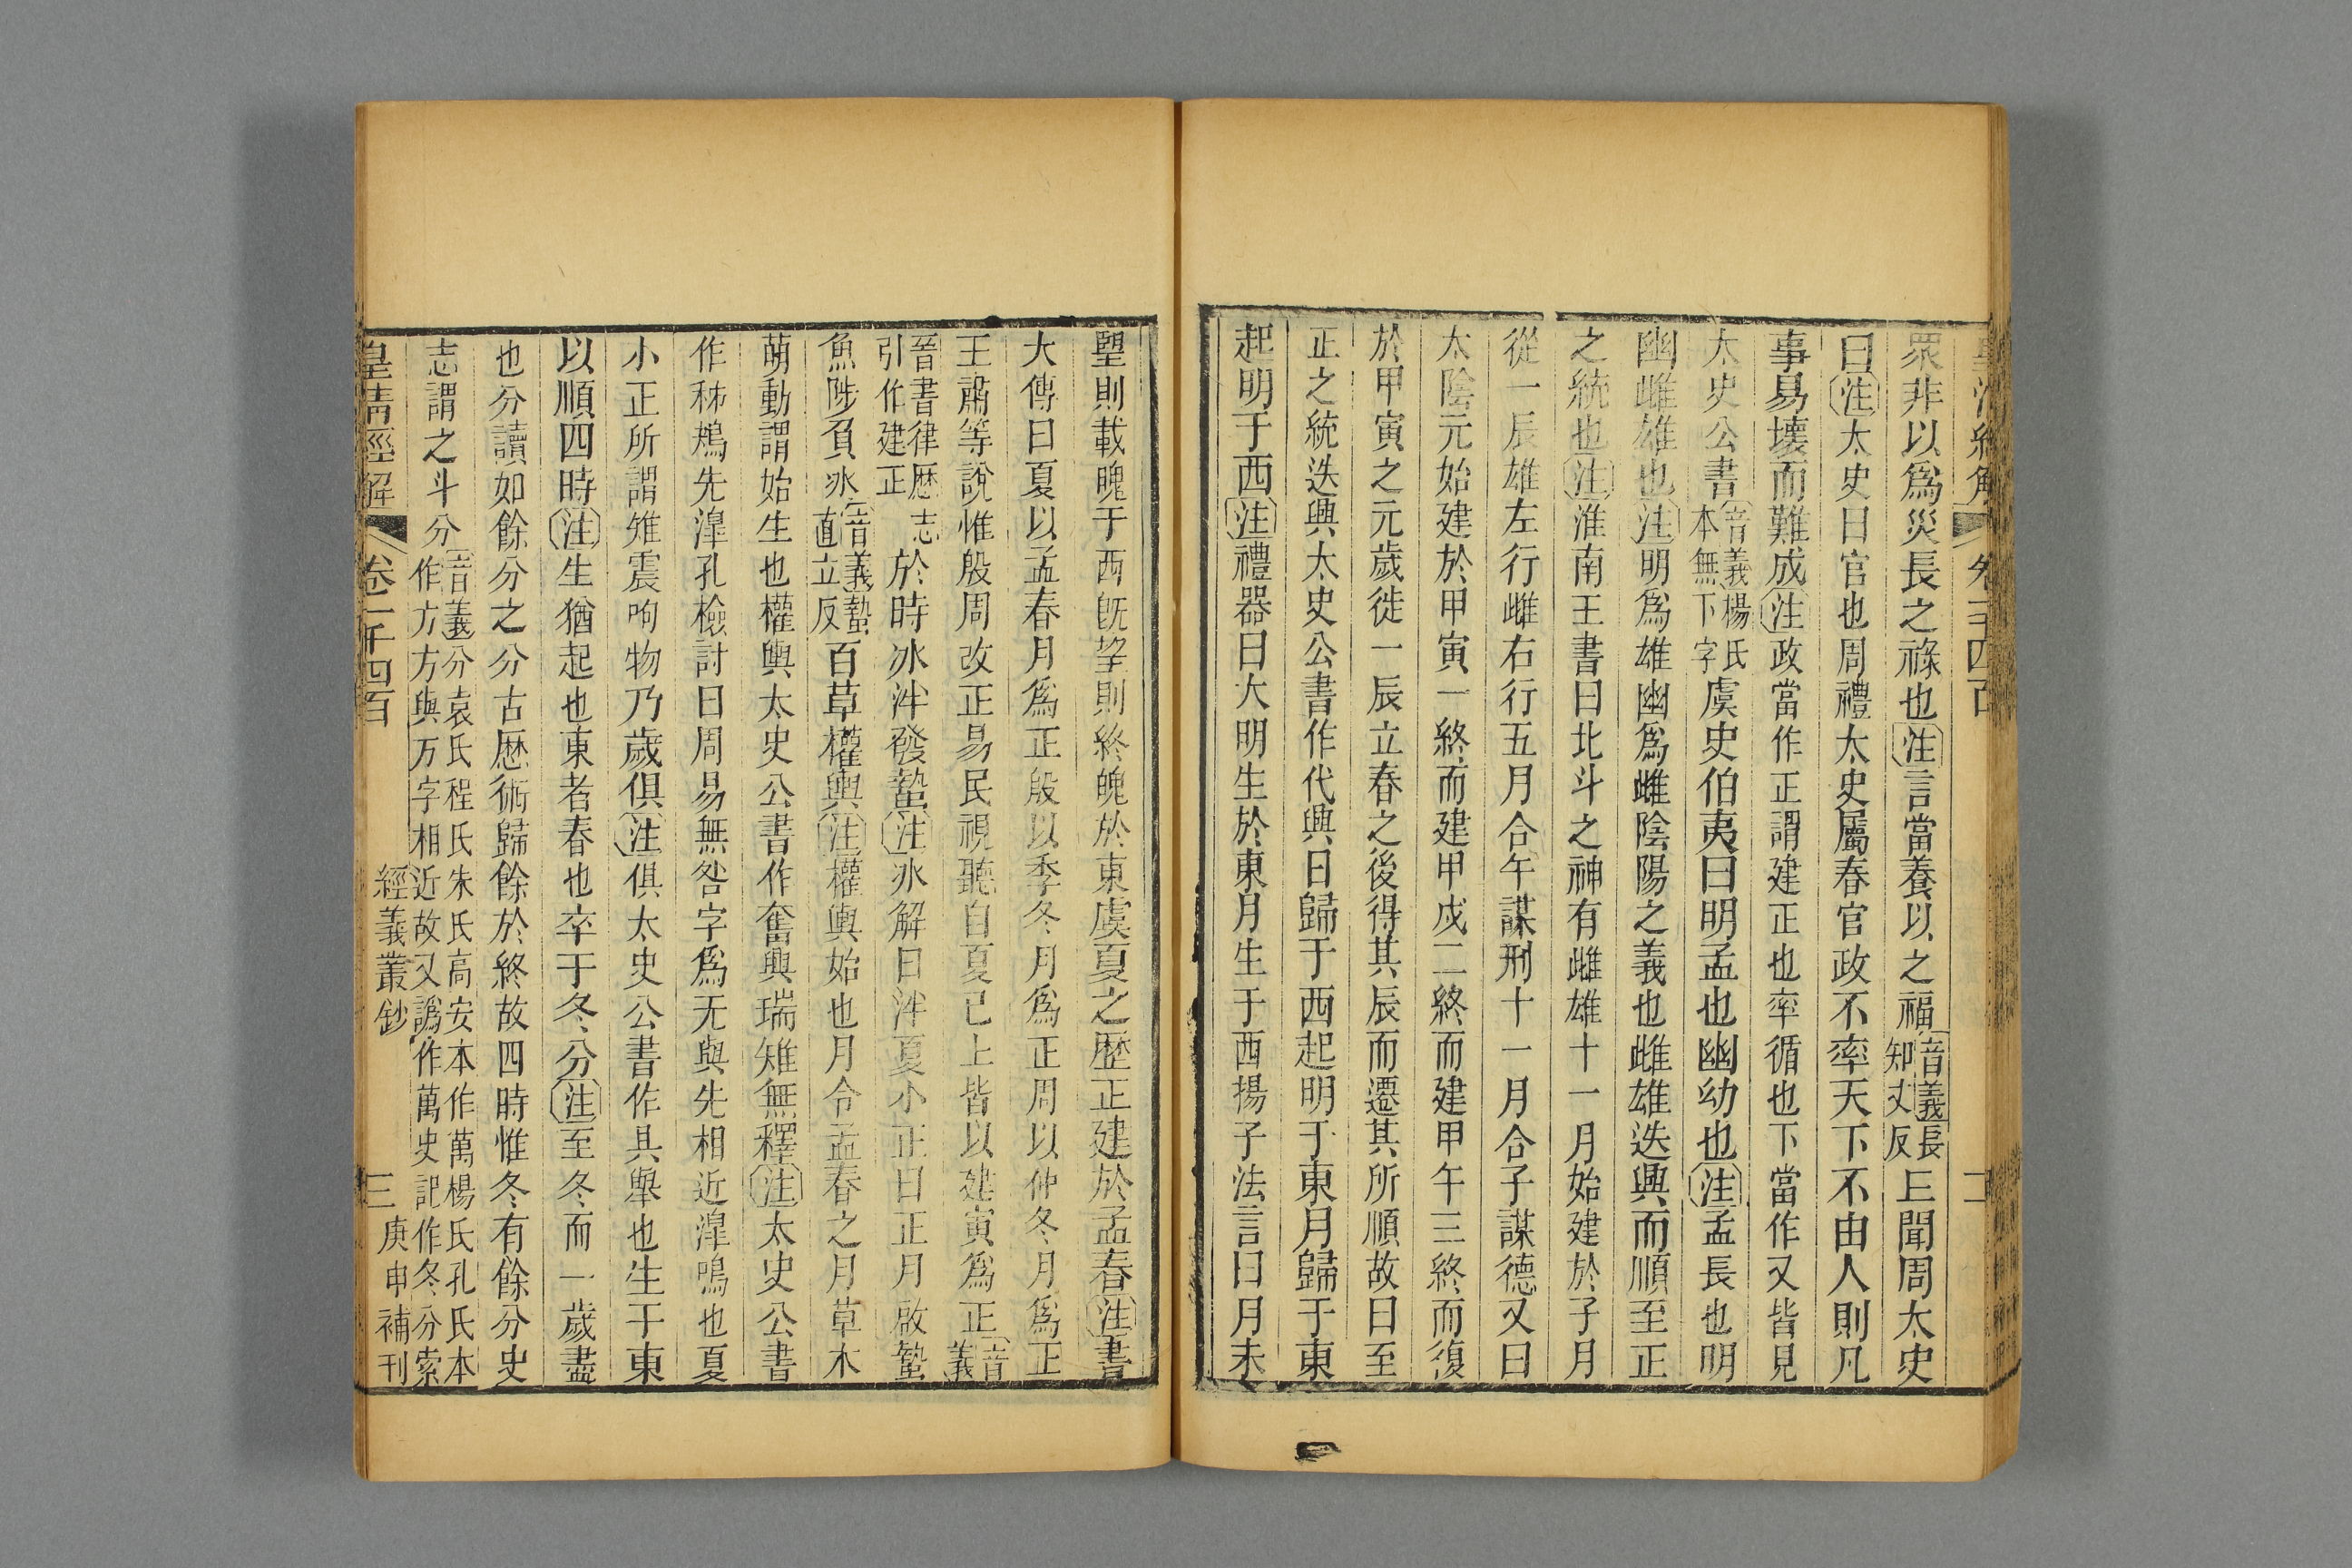 眾非以爲災長之祿也注言當養以之福音義長知丈反丘聞周太史
曰注太史日官也周禮太史屬春官政不率天下不由人則凡
事易壞而難成注政當作正謂建正也率循也下當作又皆見
太史公書音義楊氏本無下字虞史伯夷曰明孟也幽幼也注孟長也明
幽雌雄也注明爲雄幽爲雌陰陽之義也雌雄迭興而順至正
之統也注淮南王書曰北斗之神有雌雄十一月始建於子月
從一辰雄左行雌右行五月合午謀刑十一月合子謀德又曰
太陰元始建於甲寅一終而建甲戌二終而建甲午三終而復
於甲寅之元歲徙一辰立春之後得其辰而遷其所順故曰至
正之統迭興太史公書作代興日歸于西起明于東月歸于東
起明于西注禮器曰大明生於東月生于西揚子法言曰月未
朢則載魄于西旣朢則終魄於東虞夏之歷正建於孟春注書
大傳曰夏以孟春月爲正殷以季冬月爲正周以仲冬月爲正
王肅等說惟殷周改正易民視聽自夏已上皆以建寅爲正音義
晉書律歷志引作建正於時冰泮發蟄注冰解曰泮夏小正曰正月啟蟄
魚陟負冰音義蟄直立反百草權輿注權輿始也月令孟春之月草木
萌動謂始生也權輿太史公書作奮興瑞雉無釋注太史公書
作秭鴂先滜孔檢討曰周易無咎字爲无與先相近滜鳴也夏
小正所謂雉震呴物乃歲俱注俱太史公書作具舉也生于東
以順四時注生猶起也東者春也卒于冬分注至冬而一歲盡
也分讀如餘分之分古歷術歸餘於終故四時惟冬有餘分史
志謂之斗分音義分袁氏程氏朱氏高安本作萬楊氏孔氏本作方方與万字相近故又譌作萬史記作冬分索
皇淸經解 卷一千四百 經義叢鈔 三 庚申補刊